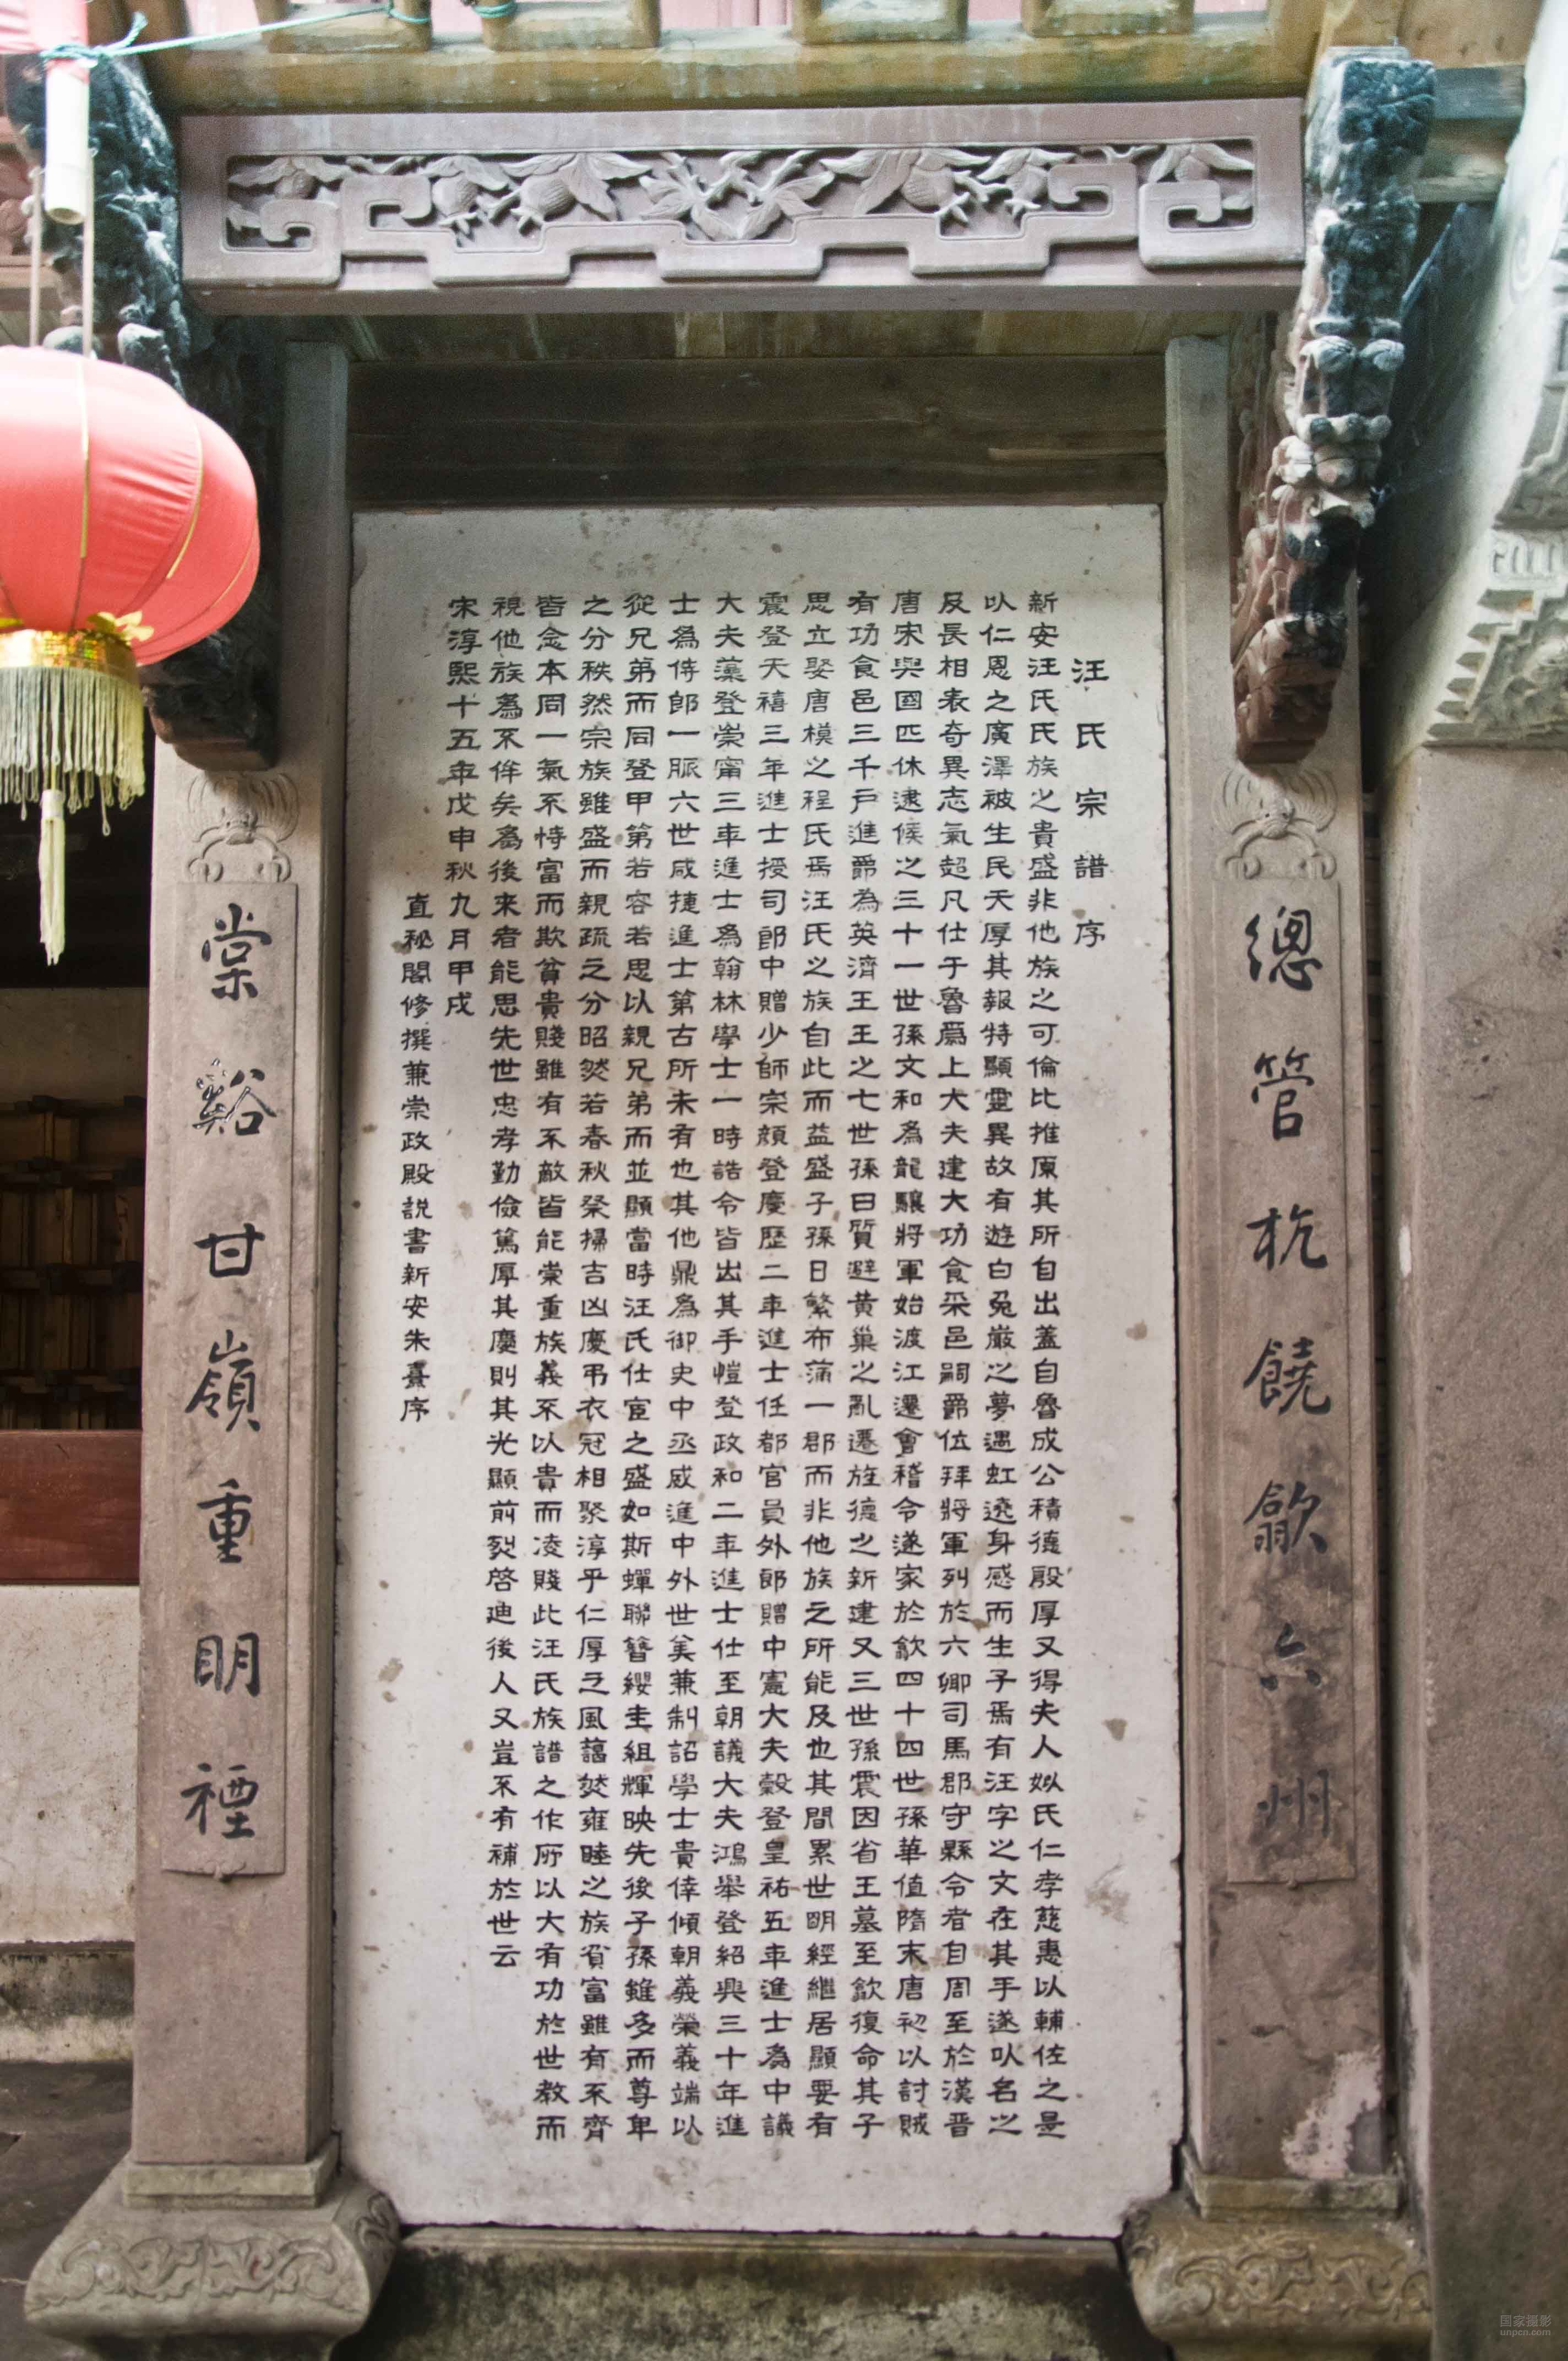 總管杭饒歙六州
汪氏宗譜序
新安汪氏氏族之貴盛非他族之可倫比推原其所自出蓋自魯成公積德殷厚又得夫人姒氏仁孝慈惠以輔佐之是
以仁恩之廣澤被生民天厚其報特顯靈異故有遊白兔巖之夢遇虹遶身感而生子焉有汪字之文在其手遂以名之
及長相表奇異志氣超凡仕于魯爲上大夫建大功食采邑嗣爵位拜將軍列於六卿司馬郡守縣令者自周至於漢晉
唐宋與國匹休逮候之三十一世孫文和為龍驤將軍始渡江遷會稽令遂家於歙四十四世孫華值隋末唐初以討賊
有功食邑三千戶進爵為英濟王王之七世孫曰質避黃巢之亂遷旌德之新建又三世孫震因省王墓至歙復命其子
思立娶唐模之程氏焉汪氏之族自此而益盛子孫日繁布蒲一郡而非他族之所能及也其間累世明經繼居顯要有
震登天禧三年進士授司郎中贈少師宗顏登慶歷二年進士任都官員外郎贈中憲大夫穀登皇祐五年進士為中議
大夫藻登崇甯三年進士為翰林學士一時誥令皆出其手愷登政和二年進士仕至朝議大夫鴻舉登紹興三十年進
士為侍郎一脈六世咸捷進士第古所未有也其他鼎為御史中丞咸進中外世美兼制詔學士貴倖傾朝義榮義端以
從兄弟而同登甲第若容若思以親兄弟而並顯當時汪氏仕宦之盛如斯蟬聯簪纓圭組輝映先後子孫雖多而尊卑
之分秩然宗族雖盛而親疏之分昭然若春秋祭掃吉凶慶弔衣冠相聚淳乎仁厚之風藹然雍睦之族貧富雖有不齊
皆念本同一氣不恃富而欺貧貴賤雖有不敵皆能崇重族義不以貴而凌賤此汪氏族譜之作所以大有功於世教而
視他族為不侔矣為後来者能思先世忠孝勤儉篤厚其慶則其光顯前烈啓迪後人又豈不有補於世云
宋淳熙十五年戊申秋九月甲戌
直秘閣修撰兼崇政殿説書新安朱熹序
棠谿甘嶺重明禋
国家摄影
unpcn.com